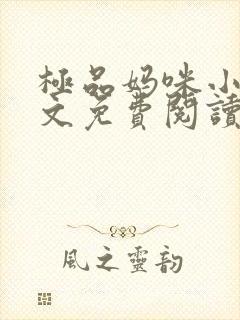 極品妈咪小
文免費閱讀
風之靈韵